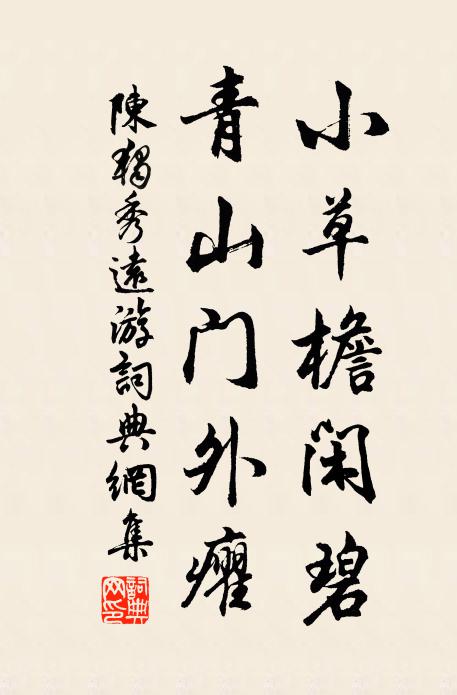 小草檐閑碧
青山门外癯
陳獨秀遠游詞典網集
詞典网印